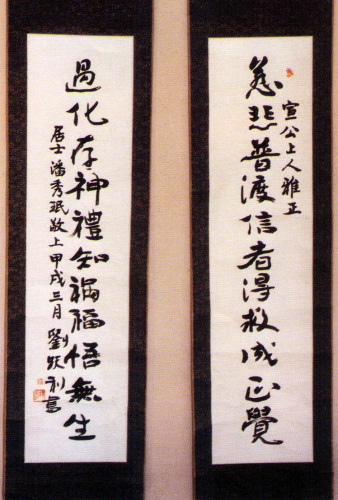 慈悲普渡信者得救成正覺
宣公上人雅正
過化存神禮知禍福悟無生
居士潘秀珉敬上甲戌三月
劉
利書